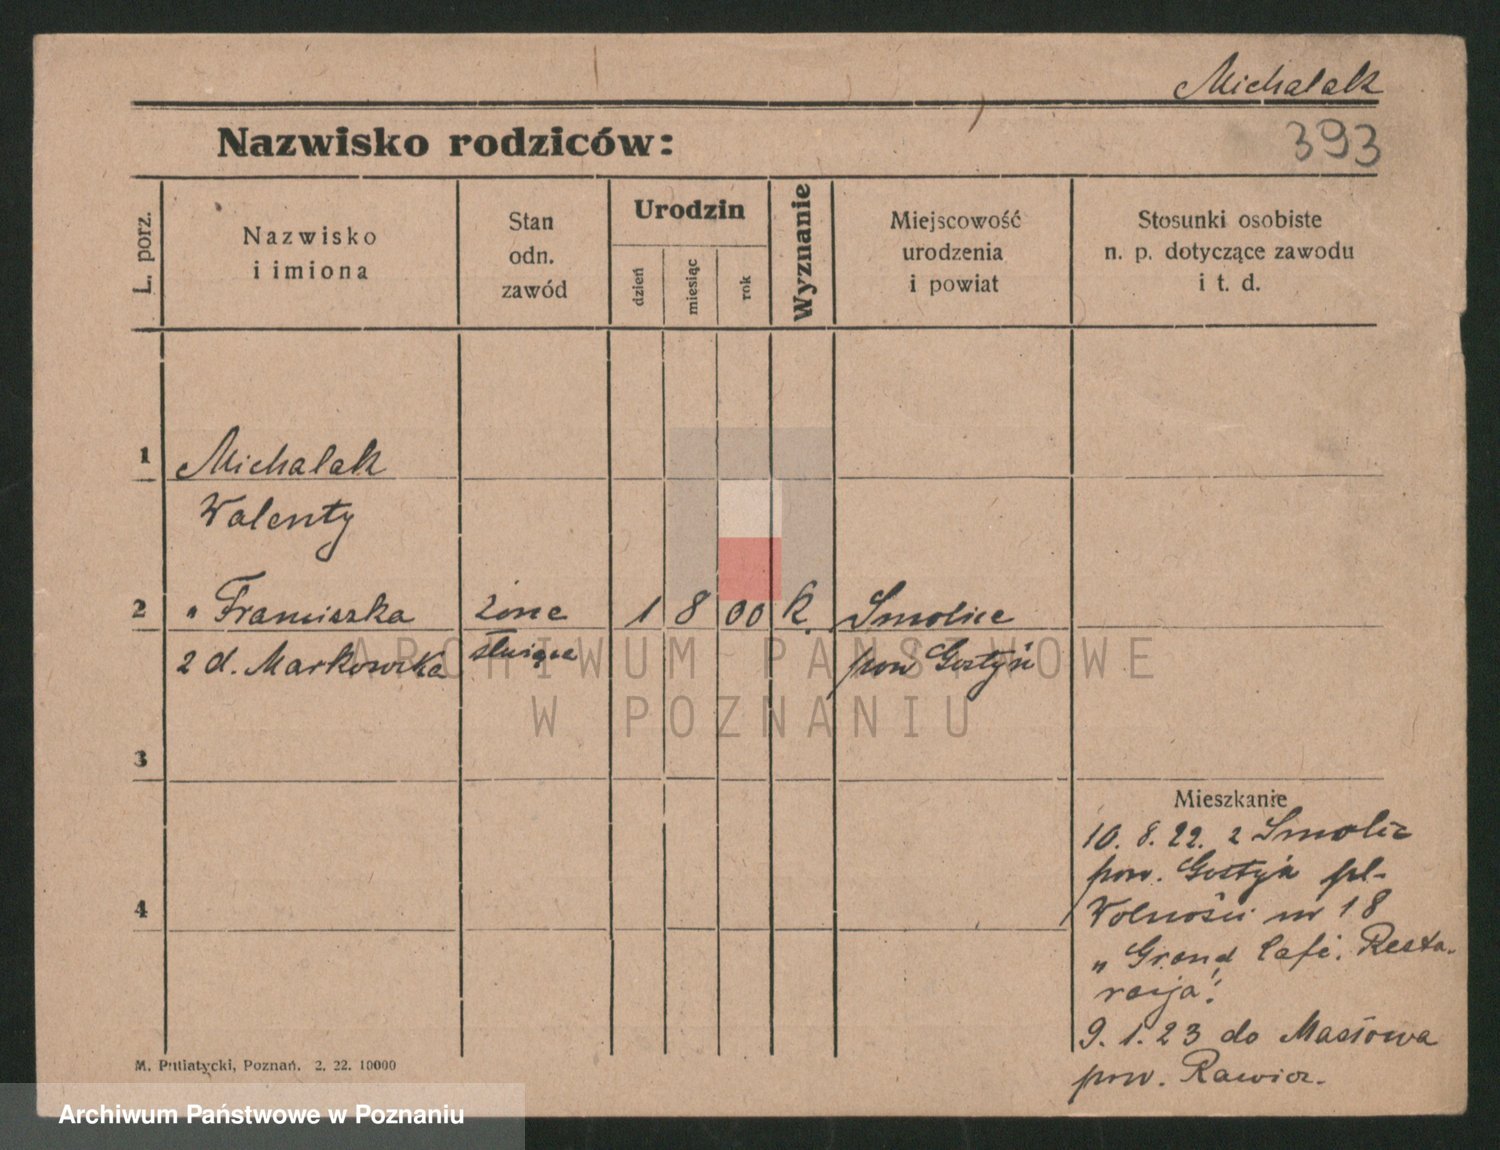 Michalak
Nazwisko rodziców:
393
L. porz.
Nazwisko
i imiona
Stan
odn.
zawód
Urodzin
dzień
miesiąc
rok
Wyznanie
Miejscowość
urodzenia
i powiat
Stosunki osobiste
n. p. dotyczące zawodu
i t. d.
1 Michalak
Walenty
2 " Franciszka żona 1 8 00 k. Smolice
z d. Markowska służąca pow Gostyń
ARCHIWUM PAŃSTWOWE
W POZNANIU
3
Mieszkanie
10. 8. 22. z Smolic
pow. Gostyń pl-
4
Wolności nr 18
„Grand Café. Resta-
racja".
9. 1. 23 do Masłowa
pow. Rawicz.
M. Putiatycki, Poznań. 2. 22. 10000
Archiwum Państwowe w Poznaniu